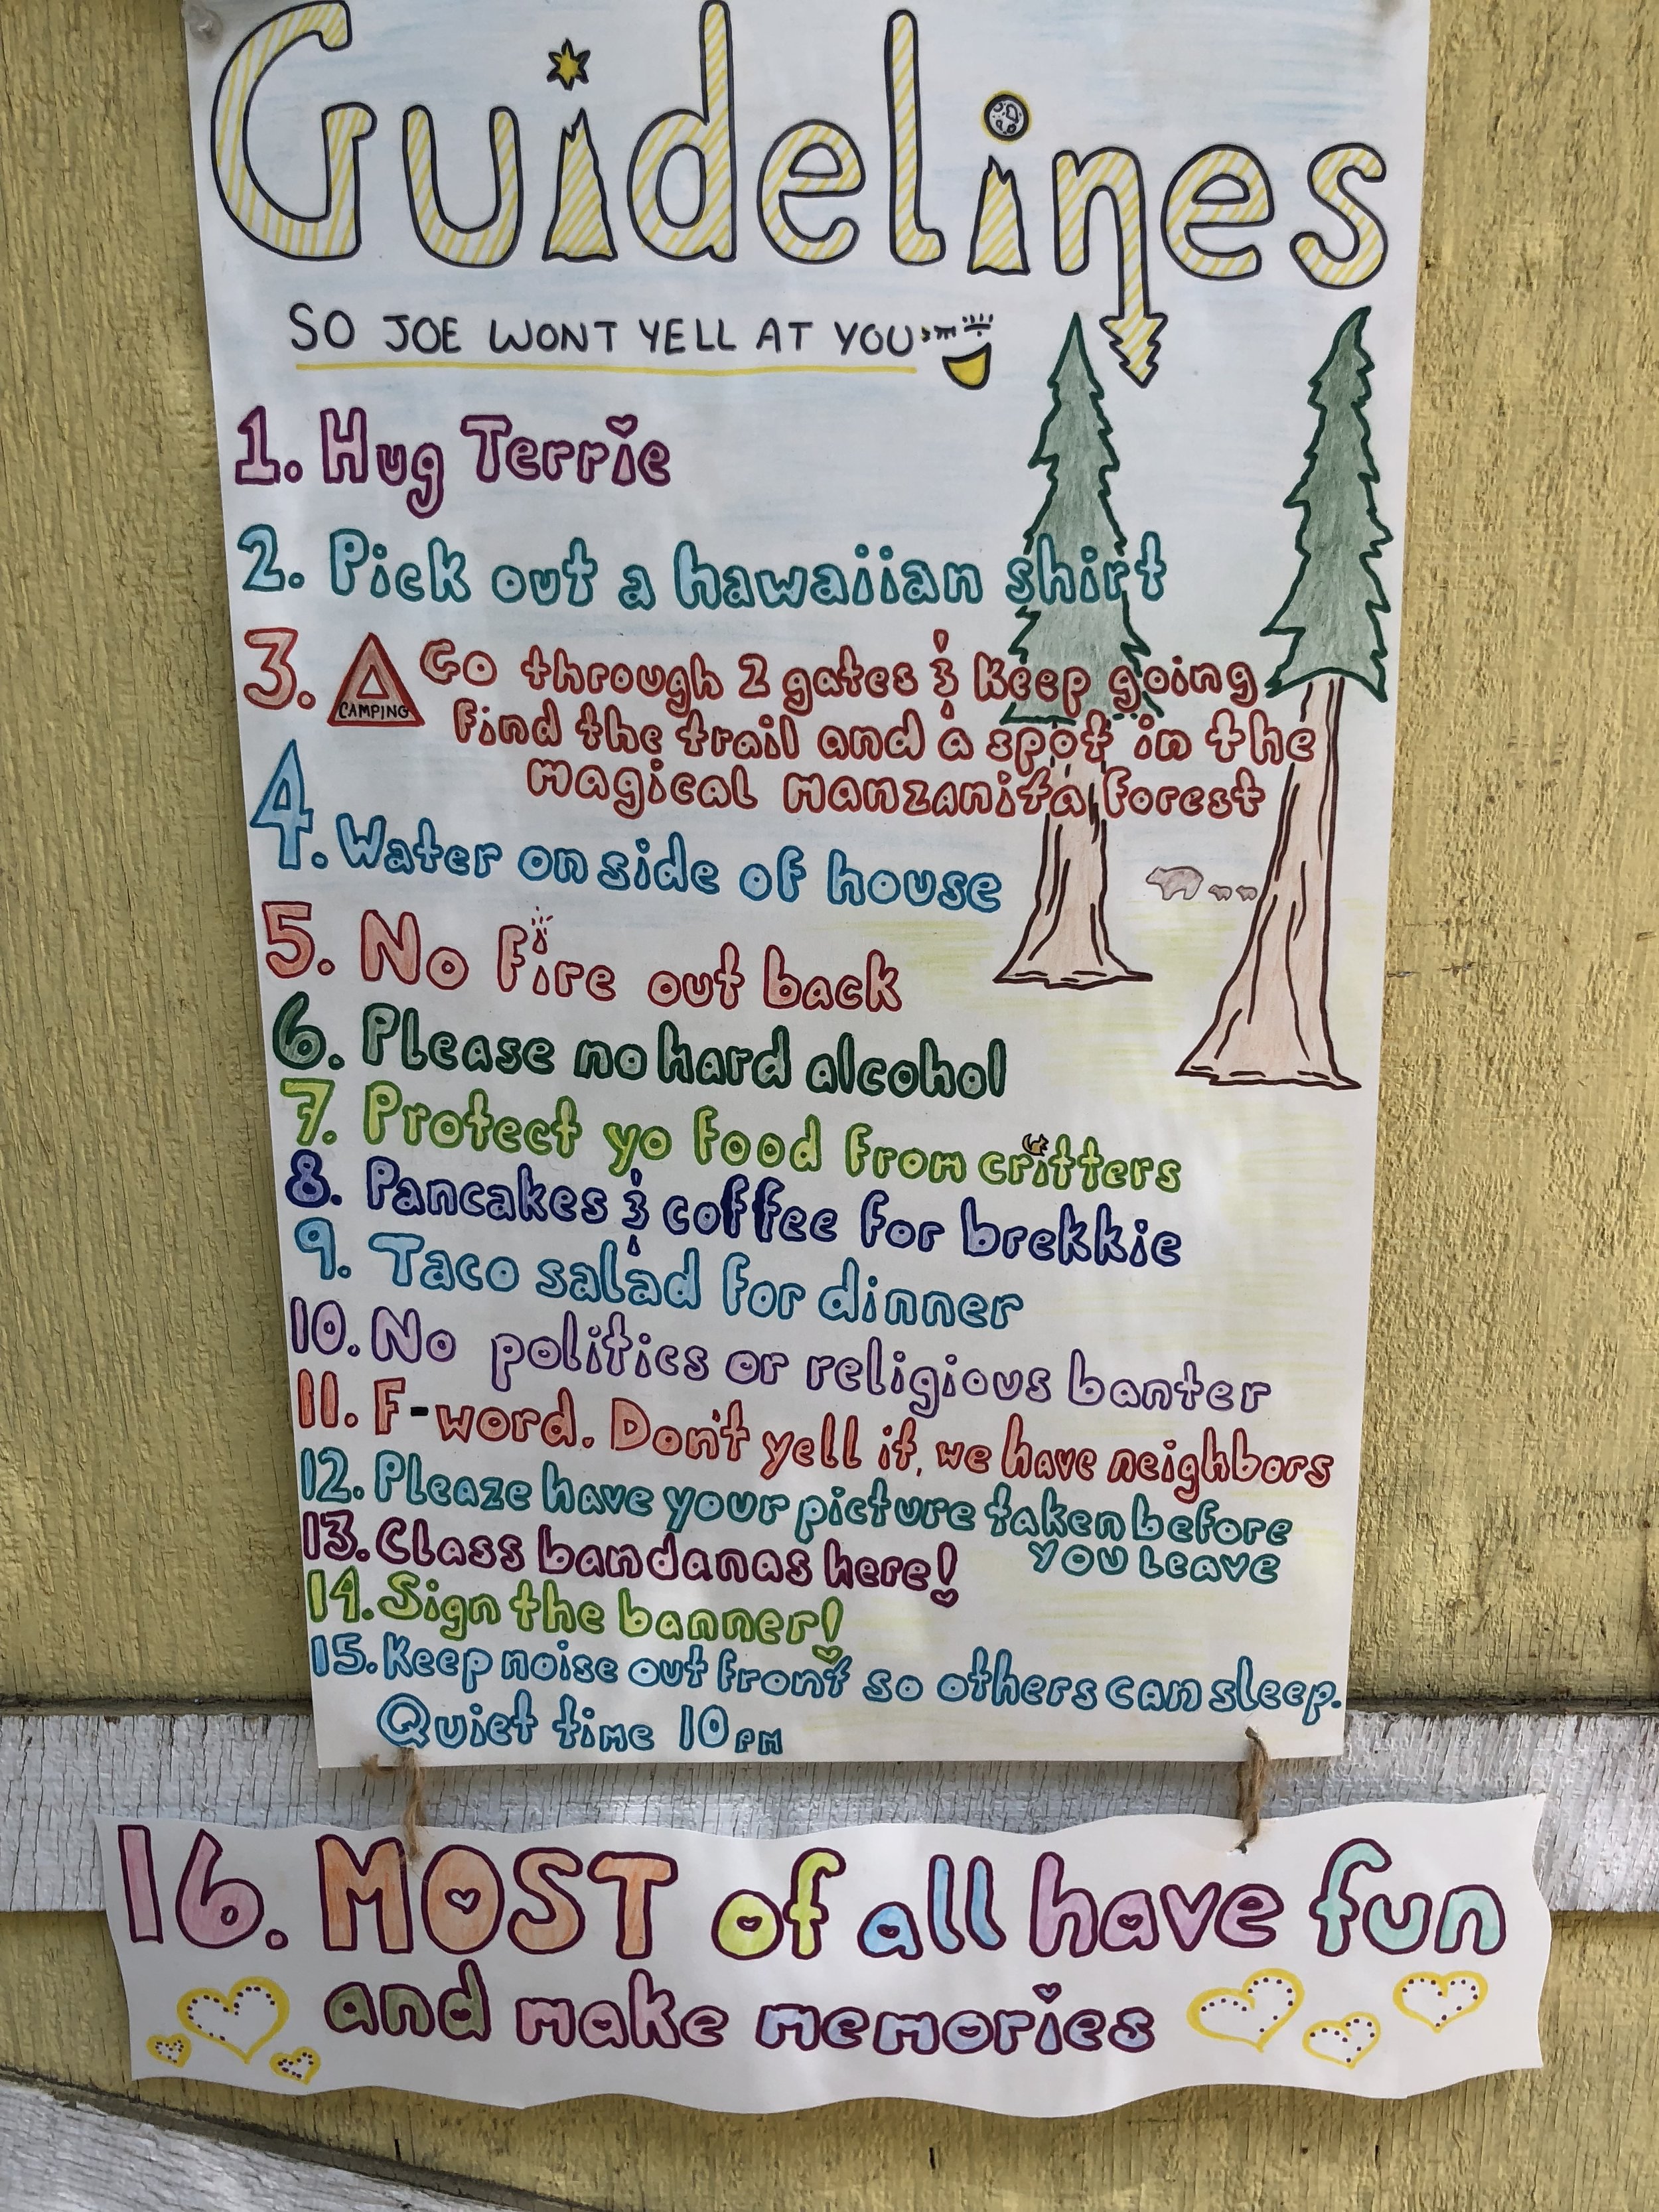 Guidelines
SO JOE WONT YELL AT YOU
1. Hug Terrie
2. Pick out a hawaiian shirt
3. CAMPING Go through 2 gates & Keep going
Find the trail and a spot in the
magical manzanita forest
4. Water on side of house
5. No Fire out back
6. Please no hard alcohol
7. Protect yo Food From critters
8. Pancakes & coffee for brekkie
9. Taco salad for dinner
10. No politics or religious banter
11. F-word. Don't yell it, we have neighbors
12. Pleaze have your picture taken before
YOU LEAVE
13. Class bandanas here!
14. Sign the banner!
15. Keep noise out front so others can sleep.
Quiet time 10 PM
16. MOST of all have fun
and make memories